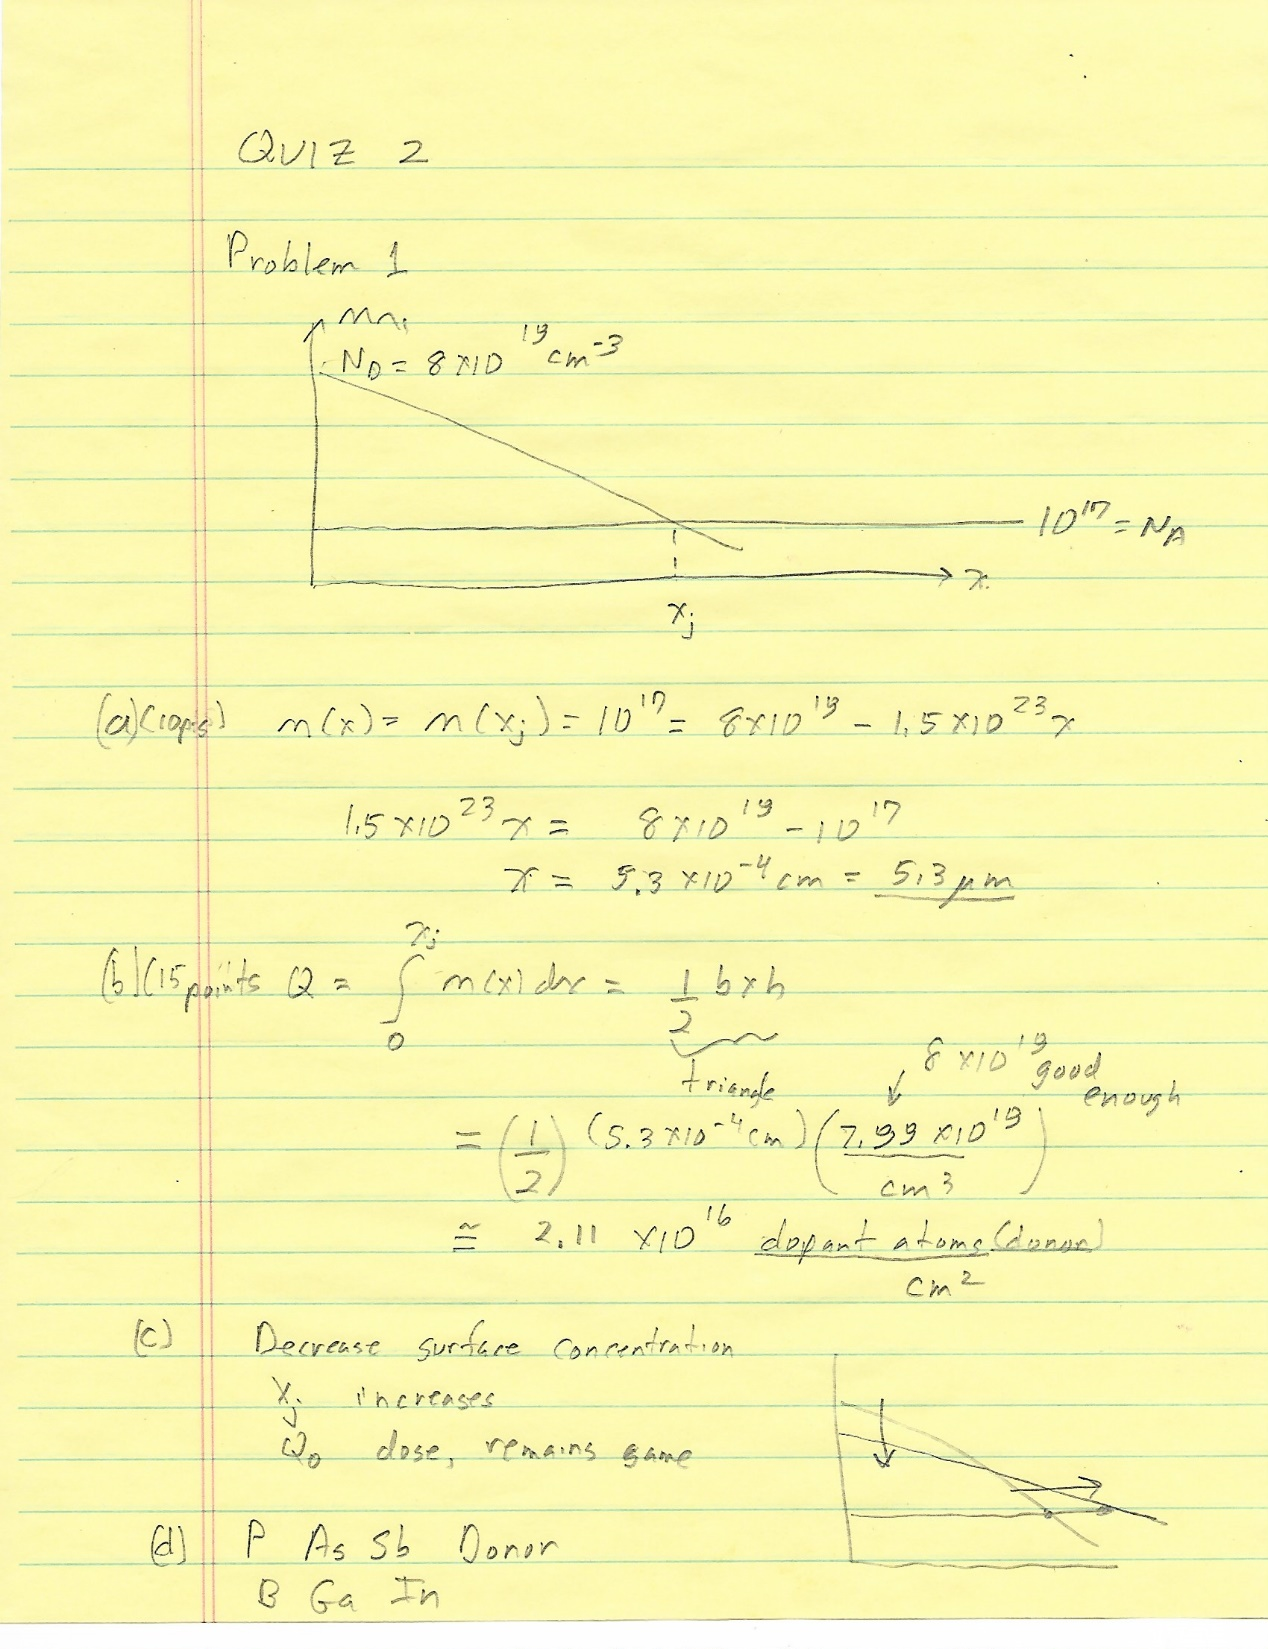 QUIZ 2
Problem 1
N_D = 8×10^19 cm^-3
10^17 = N_A
x
x_j
(a)(10pts) n(x) = n(x_j) = 10^17 = 8×10^19 - 1.5×10^23 x
1.5×10^23 x = 8×10^19 - 10^17
x = 5.3×10^-4 cm = 5.3 μm
(b)(15 points Q = ∫_0^{x_j} n(x) dx = 1/2 b×h
triangle
8×10^19 good enough
= (1/2) (5.3×10^-4 cm) (7.99×10^19 / cm^3)
≅ 2.11 ×10^16 dopant atoms (donor) / cm^2
(c) Decrease surface concentration
x_j increases
Q_0 dose, remains same
(d) P As Sb Donor
B Ga In